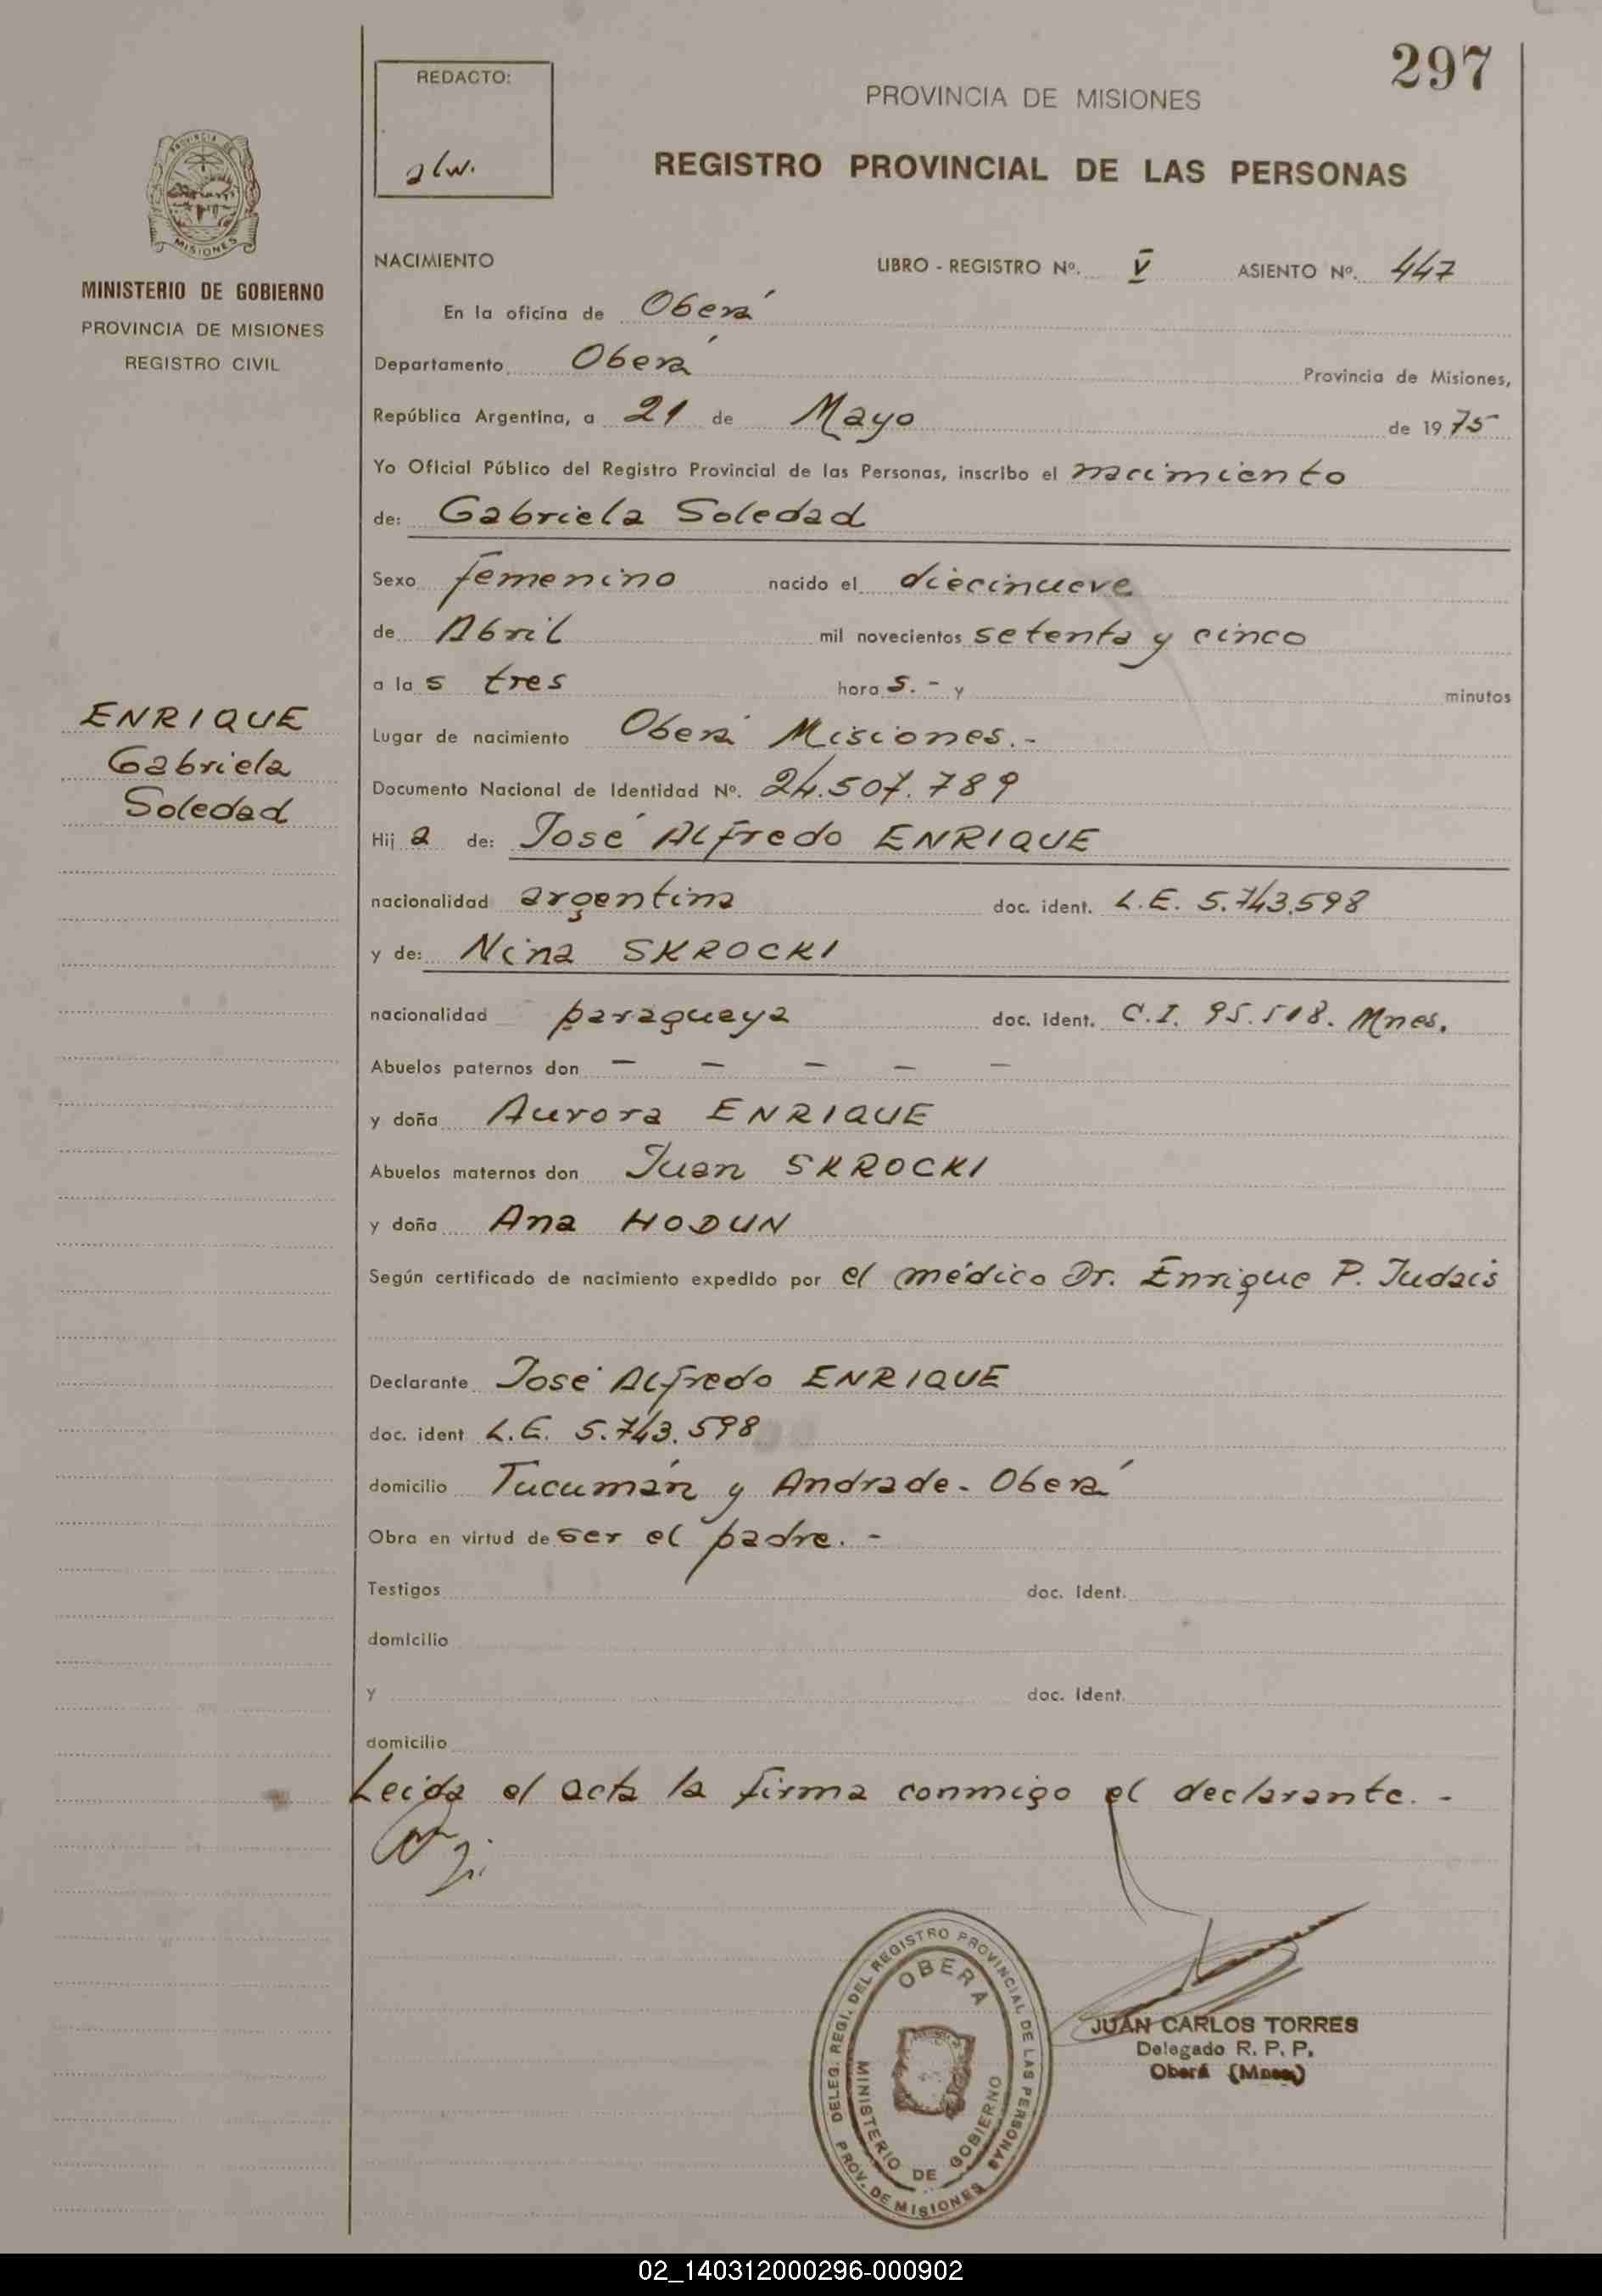 297
REDACTO:
PROVINCIA DE MISIONES
REGISTRO PROVINCIAL DE LAS PERSONAS
PROVINCIA DE
MISIONES
MINISTERIO DE GOBIERNO
PROVINCIA DE MISIONES
REGISTRO CIVIL
NACIMIENTO LIBRO - REGISTRO Nº. V ASIENTO Nº. 447
En la oficina de Oberá
Departamento Oberá Provincia de Misiones,
República Argentina, a 21 de Mayo de 1975
Yo Oficial Público del Registro Provincial de las Personas, inscribo el nacimiento
de: Gabriela Soledad
Sexo femenino nacido el diecinueve
de Abril mil novecientos setenta y cinco
a las tres horas.- y minutos
ENRIQUE
Gabriela
Soledad
Lugar de nacimiento Oberá Misiones.-
Documento Nacional de Identidad Nº. 24.507.789
Hija de: José Alfredo ENRIQUE
nacionalidad argentina doc. ident. L.E. 5.743.598
y de: Nina SKROCKI
nacionalidad paragueya doc. ident. C.I. 95.518. Mnes.
Abuelos paternos don - - - - -
y doña Aurora ENRIQUE
Abuelos maternos don Juan SKROCKI
y doña Ana HODUN
Según certificado de nacimiento expedido por el médico Dr. Enrique P. Judais
Declarante José Alfredo ENRIQUE
doc. ident L.E. 5.743.598
domicilio Tucumán y Andrade- Oberá
Obra en virtud de ser el padre.-
Testigos doc. ident.
domicilio
y doc. ident.
domicilio
Leida el acta la firma conmigo el declarante.-
DELEG. REGI. DEL REGISTRO PROVINCIAL DE LAS PERSONAS
PROV. DE MISIONES
OBERA
MINISTERIO DE GOBIERNO
JUAN CARLOS TORRES
Delegado R. P. P.
Oberá (Mnes)
02_140312000296-000902